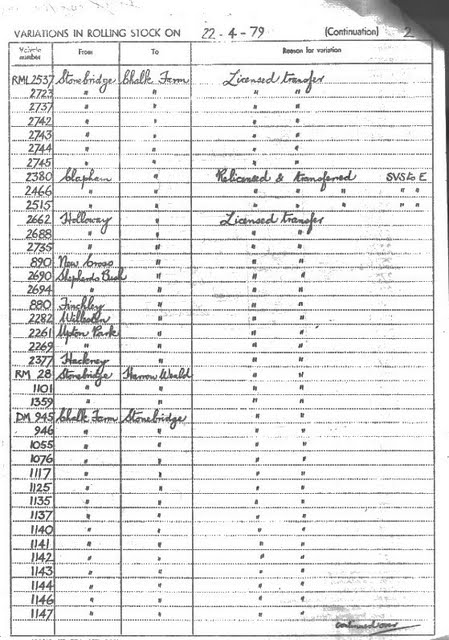 VARIATIONS IN ROLLING STOCK ON 22-4-79 (Continuation) 2
Vehicle number From To Reason for variation
RML2537 Stonebridge Chalk Farm Licensed transfer
2723 " " " "
2737 " " " "
2742 " " " "
2743 " " " "
2744 " " " "
2745 " " " "
2380 Clapham " Relicensed & transferred SVS to E
2466 " " " " " " "
2515 " " " " " " "
2662 Holloway " Licensed transfer
2688 " " " "
2735 " " " "
890 New Cross " " "
2690 Shepherds Bush " " "
2694 " " " "
880 Finchley " " "
2282 Willesden " " "
2261 Upton Park " " "
2269 " " " "
2377 Hackney " " "
RM 28 Stonebridge Harrow Weald " "
1101 " " " "
1359 " " " "
DM 945 Chalk Farm Stonebridge " "
946 " " " "
1055 " " " "
1076 " " " "
1117 " " " "
1125 " " " "
1135 " " " "
1137 " " " "
1140 " " " "
1141 " " " "
1142 " " " "
1143 " " " "
1144 " " " "
1146 " " " "
1147 " " " "
continued over